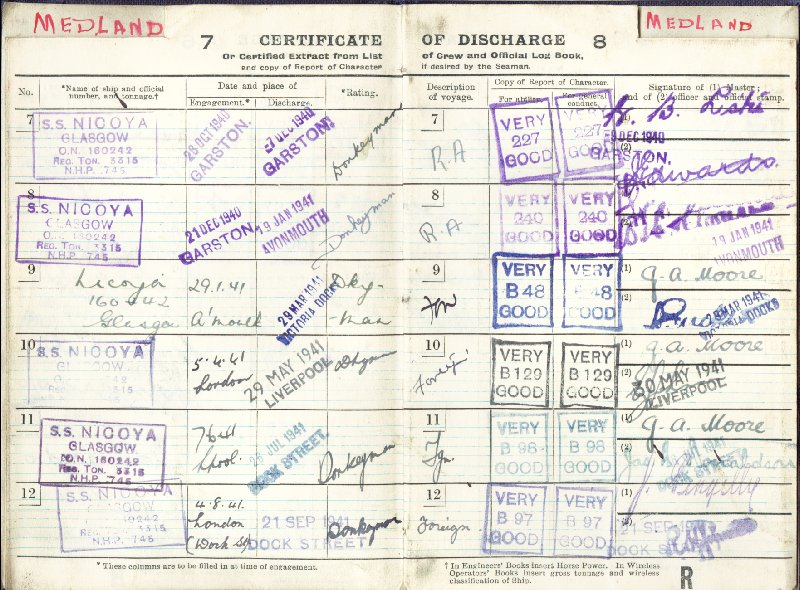 MEDLAND
MEDLAND
7 CERTIFICATE OF DISCHARGE 8
Or Certified Extract from List of Crew and Official Log Book,
and copy of Report of Character if desired by the Seaman.
No.
*Name of ship and official number, and tonnage.†
Date and place of
Engagement.*
Discharge.
*Rating.
Description of voyage.
Copy of Report of Character.
For ability.
For general conduct.
Signature of (1) Master; and of (2) officer and official stamp.
7
S.S. NICOYA
GLASGOW
O.N. 160242
REG. TON. 3315
N.H.P. 745
28 OCT 1940
GARSTON.
DEC 1940
GARSTON.
Donkeyman
7
R.A
VERY
227
GOOD
VERY
227
GOOD
(1)
(2)
DEC 1940
GARSTON.
8
S.S. NICOYA
GLASGOW
O.N. 160242
REG. TON. 3315
N.H.P. 745
21 DEC 1940
GARSTON.
19 JAN 1941
AVONMOUTH
Donkeyman
8
R.A.
VERY
240
GOOD
VERY
240
GOOD
19 JAN 1941
AVONMOUTH
9
160442
29.1.41
A'mouth
29 MAR 1941
VICTORIA DOCKS
Dky-
man
9
VERY
B 48
GOOD
VERY
48
GOOD
(1) G. A. Moore
(2)
MAR 1941
VICTORIA DOCKS
10
S.S. NICOYA
GLASGOW
745
5.4.41
London
29 MAY 1941
LIVERPOOL
10
Foreign
VERY
B 129
GOOD
VERY
B 129
GOOD
(1) G. A. Moore
30 MAY 1941
LIVERPOOL
11
S.S. NICOYA
GLASGOW
O.N. 160242
REG. TON. 3315
N.H.P. 745
7 6 41
Lpool
JUL 1941
DOCK STREET
Donkeyman
11
Fgn.
VERY
B 98
GOOD
VERY
B 98
GOOD
(1) G. A. Moore
(2)
12
S.S. NICOYA
GLASGOW
REG. TON. 3315
N.H.P. 745
4.8.41.
London
(Dock St)
21 SEP 1941
DOCK STREET
Donkeyman
12
Foreign
VERY
B 97
GOOD
VERY
B 97
GOOD
21 SEP 1941
DOCK
* These columns are to be filled in at time of engagement.
† In Engineers' Books insert Horse Power. In Wireless
Operators' Books insert gross tonnage and wireless
classification of Ship.
R